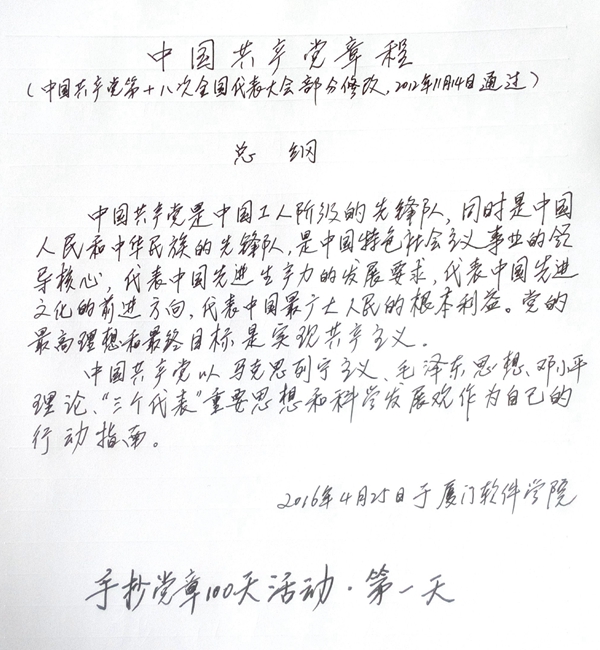 中国共产党章程
（中国共产党第十八次全国代表大会部分修改，2012年11月14日通过）
总 纲
中国共产党是中国工人阶级的先锋队，同时是中国
人民和中华民族的先锋队，是中国特色社会主义事业的领
导核心，代表中国先进生产力的发展要求，代表中国先进
文化的前进方向，代表中国最广大人民的根本利益。党的
最高理想和最终目标是实现共产主义。
中国共产党以马克思列宁主义、毛泽东思想、邓小平
理论、“三个代表”重要思想和科学发展观作为自己的
行动指南。
2016年4月25日于厦门软件学院
手抄党章100天活动·第一天